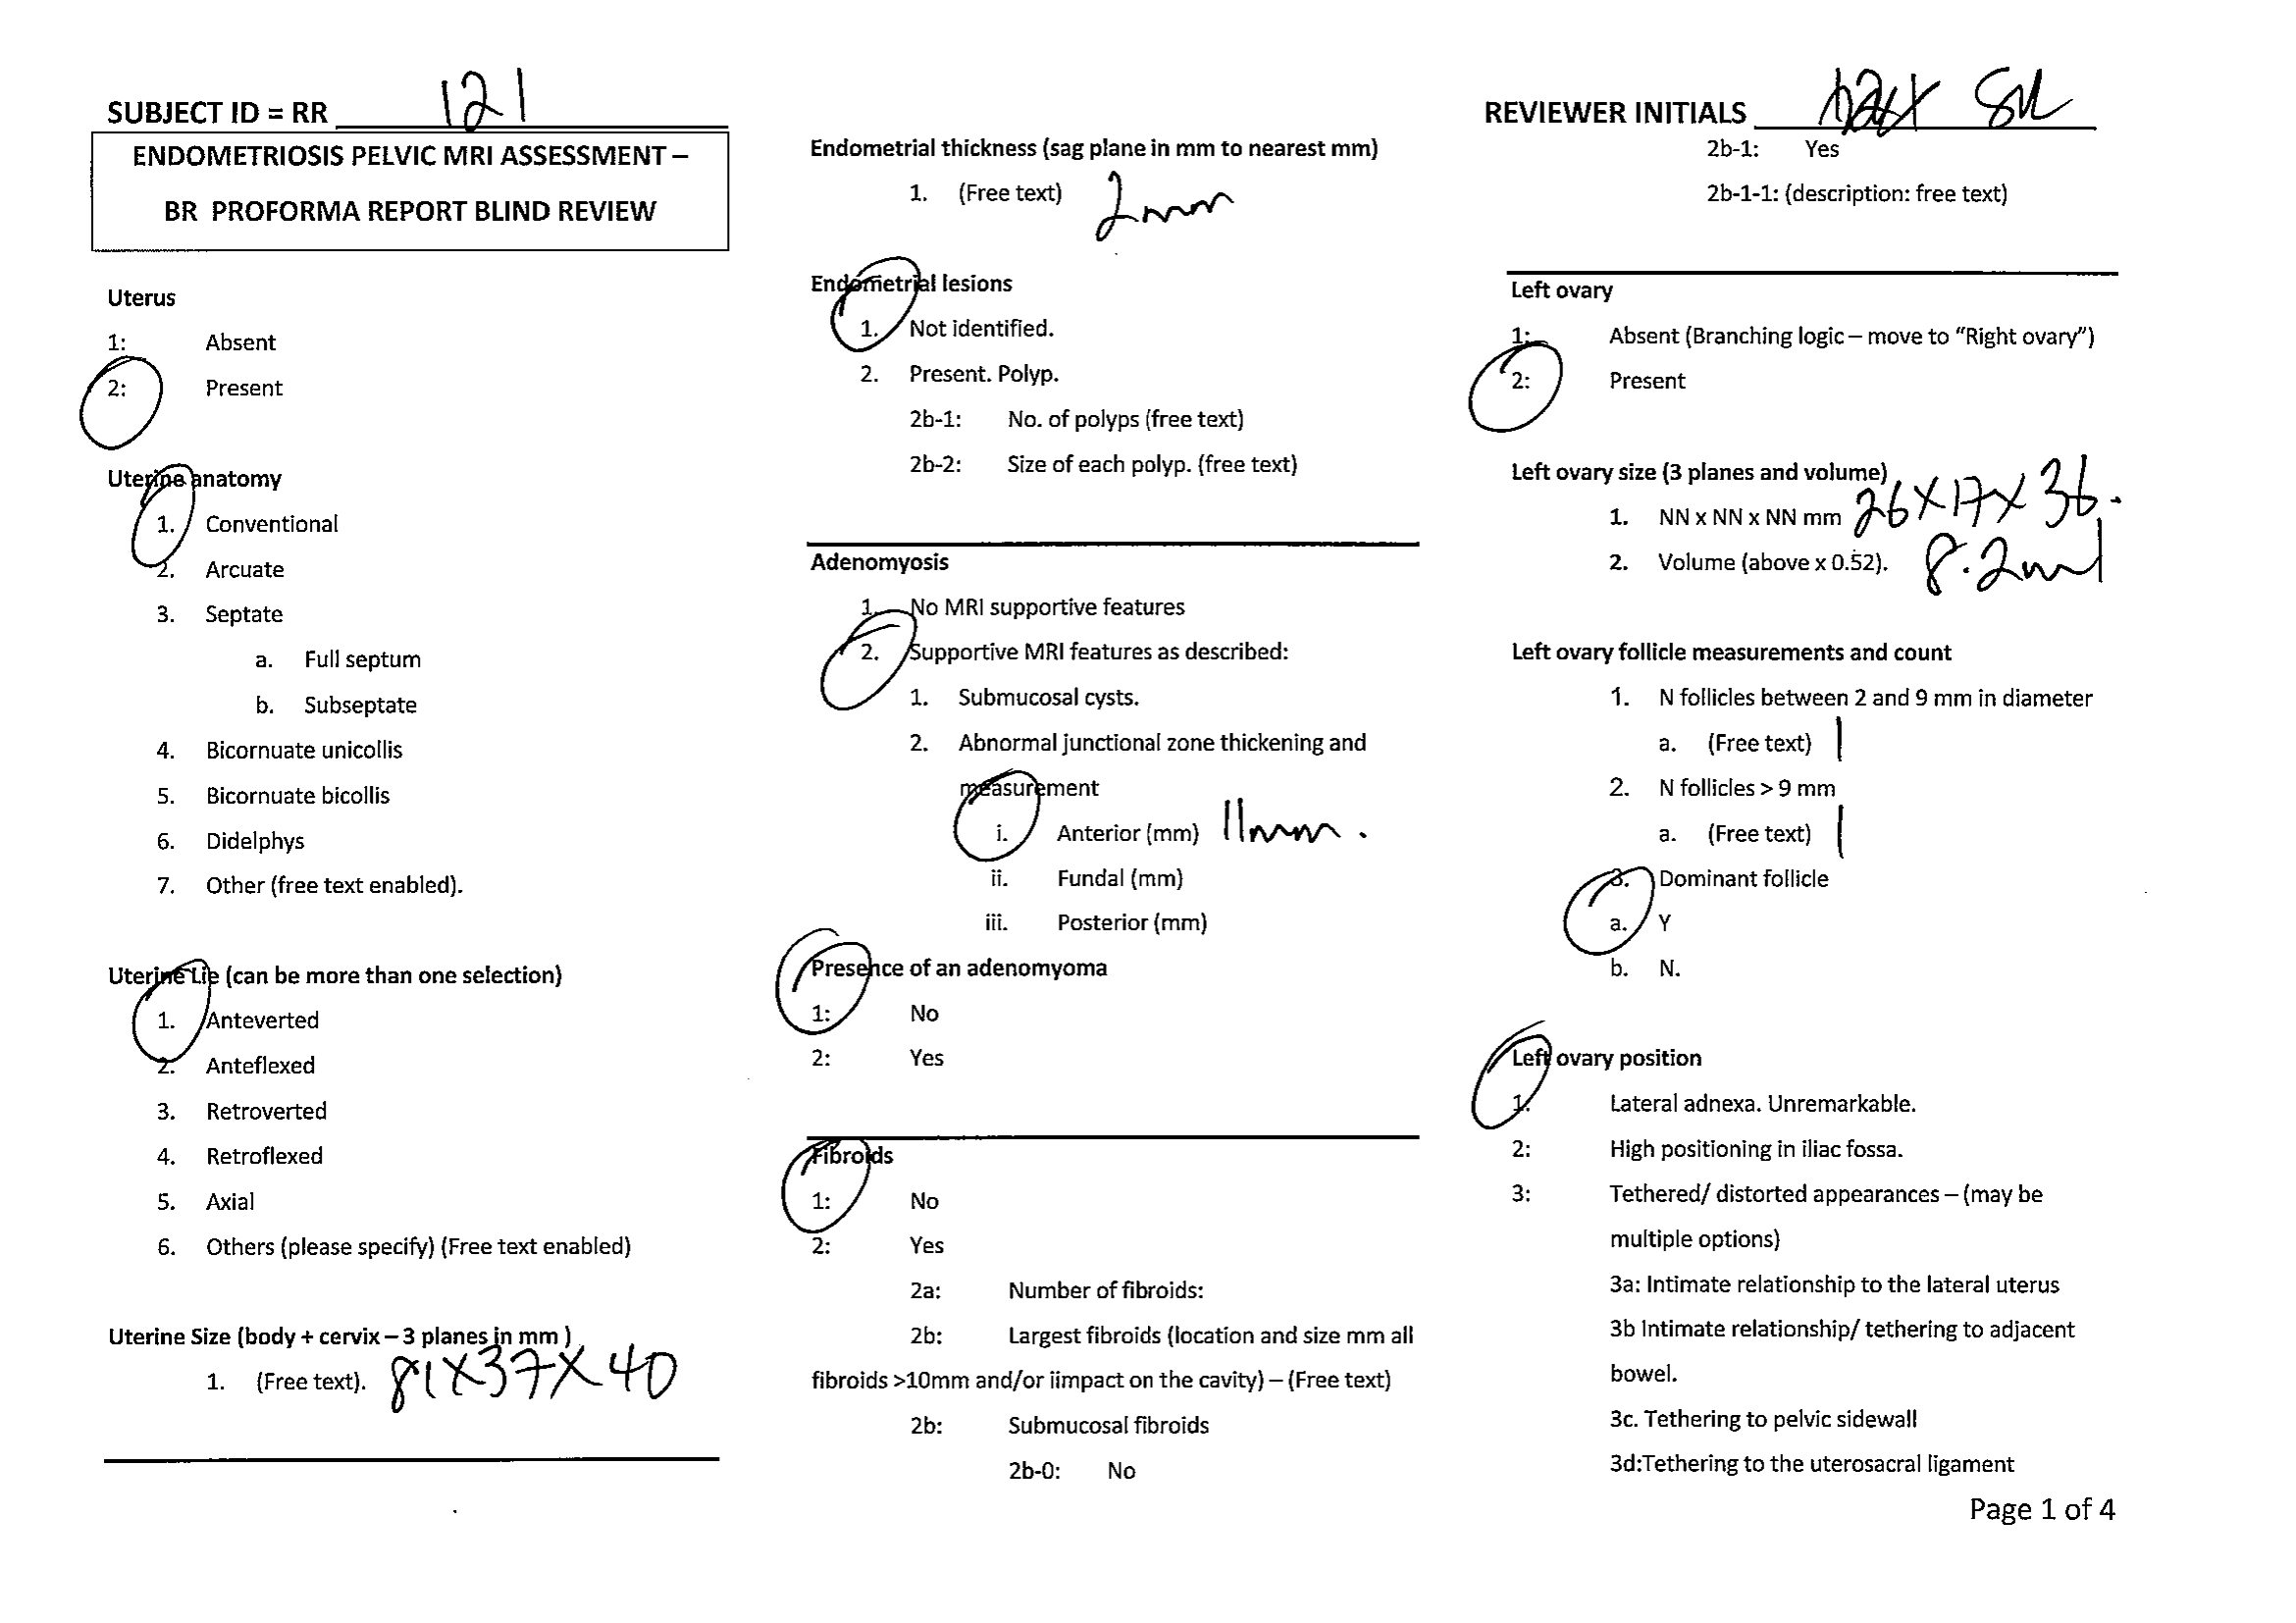 SUBJECT ID = RR 121
ENDOMETRIOSIS PELVIC MRI ASSESSMENT –
BR PROFORMA REPORT BLIND REVIEW
Uterus
1: Absent
2: Present
Uterine anatomy
1. Conventional
2. Arcuate
3. Septate
a. Full septum
b. Subseptate
4. Bicornuate unicollis
5. Bicornuate bicollis
6. Didelphys
7. Other (free text enabled).
Uterine Lie (can be more than one selection)
1. Anteverted
2. Anteflexed
3. Retroverted
4. Retroflexed
5. Axial
6. Others (please specify) (Free text enabled)
Uterine Size (body + cervix – 3 planes in mm )
1. (Free text). 81X37X40
Endometrial thickness (sag plane in mm to nearest mm)
1. (Free text) 2mm
Endometrial lesions
1. Not identified.
2. Present. Polyp.
2b-1: No. of polyps (free text)
2b-2: Size of each polyp. (free text)
Adenomyosis
1. No MRI supportive features
2. Supportive MRI features as described:
1. Submucosal cysts.
2. Abnormal junctional zone thickening and
measurement
i. Anterior (mm) 11mm.
ii. Fundal (mm)
iii. Posterior (mm)
Presence of an adenomyoma
1: No
2: Yes
Fibroids
1: No
2: Yes
2a: Number of fibroids:
2b: Largest fibroids (location and size mm all
fibroids >10mm and/or iimpact on the cavity) – (Free text)
2b: Submucosal fibroids
2b-0: No
REVIEWER INITIALS
2b-1: Yes
2b-1-1: (description: free text)
Left ovary
1: Absent (Branching logic – move to “Right ovary”)
2: Present
Left ovary size (3 planes and volume)
1. NN x NN x NN mm 26X17X36.
2. Volume (above x 0.52). 8.2ml
Left ovary follicle measurements and count
1. N follicles between 2 and 9 mm in diameter
a. (Free text) 1
2. N follicles > 9 mm
a. (Free text) 1
3. Dominant follicle
a. Y
b. N.
Left ovary position
1. Lateral adnexa. Unremarkable.
2: High positioning in iliac fossa.
3: Tethered/ distorted appearances – (may be
multiple options)
3a: Intimate relationship to the lateral uterus
3b Intimate relationship/ tethering to adjacent
bowel.
3c. Tethering to pelvic sidewall
3d:Tethering to the uterosacral ligament
Page 1 of 4